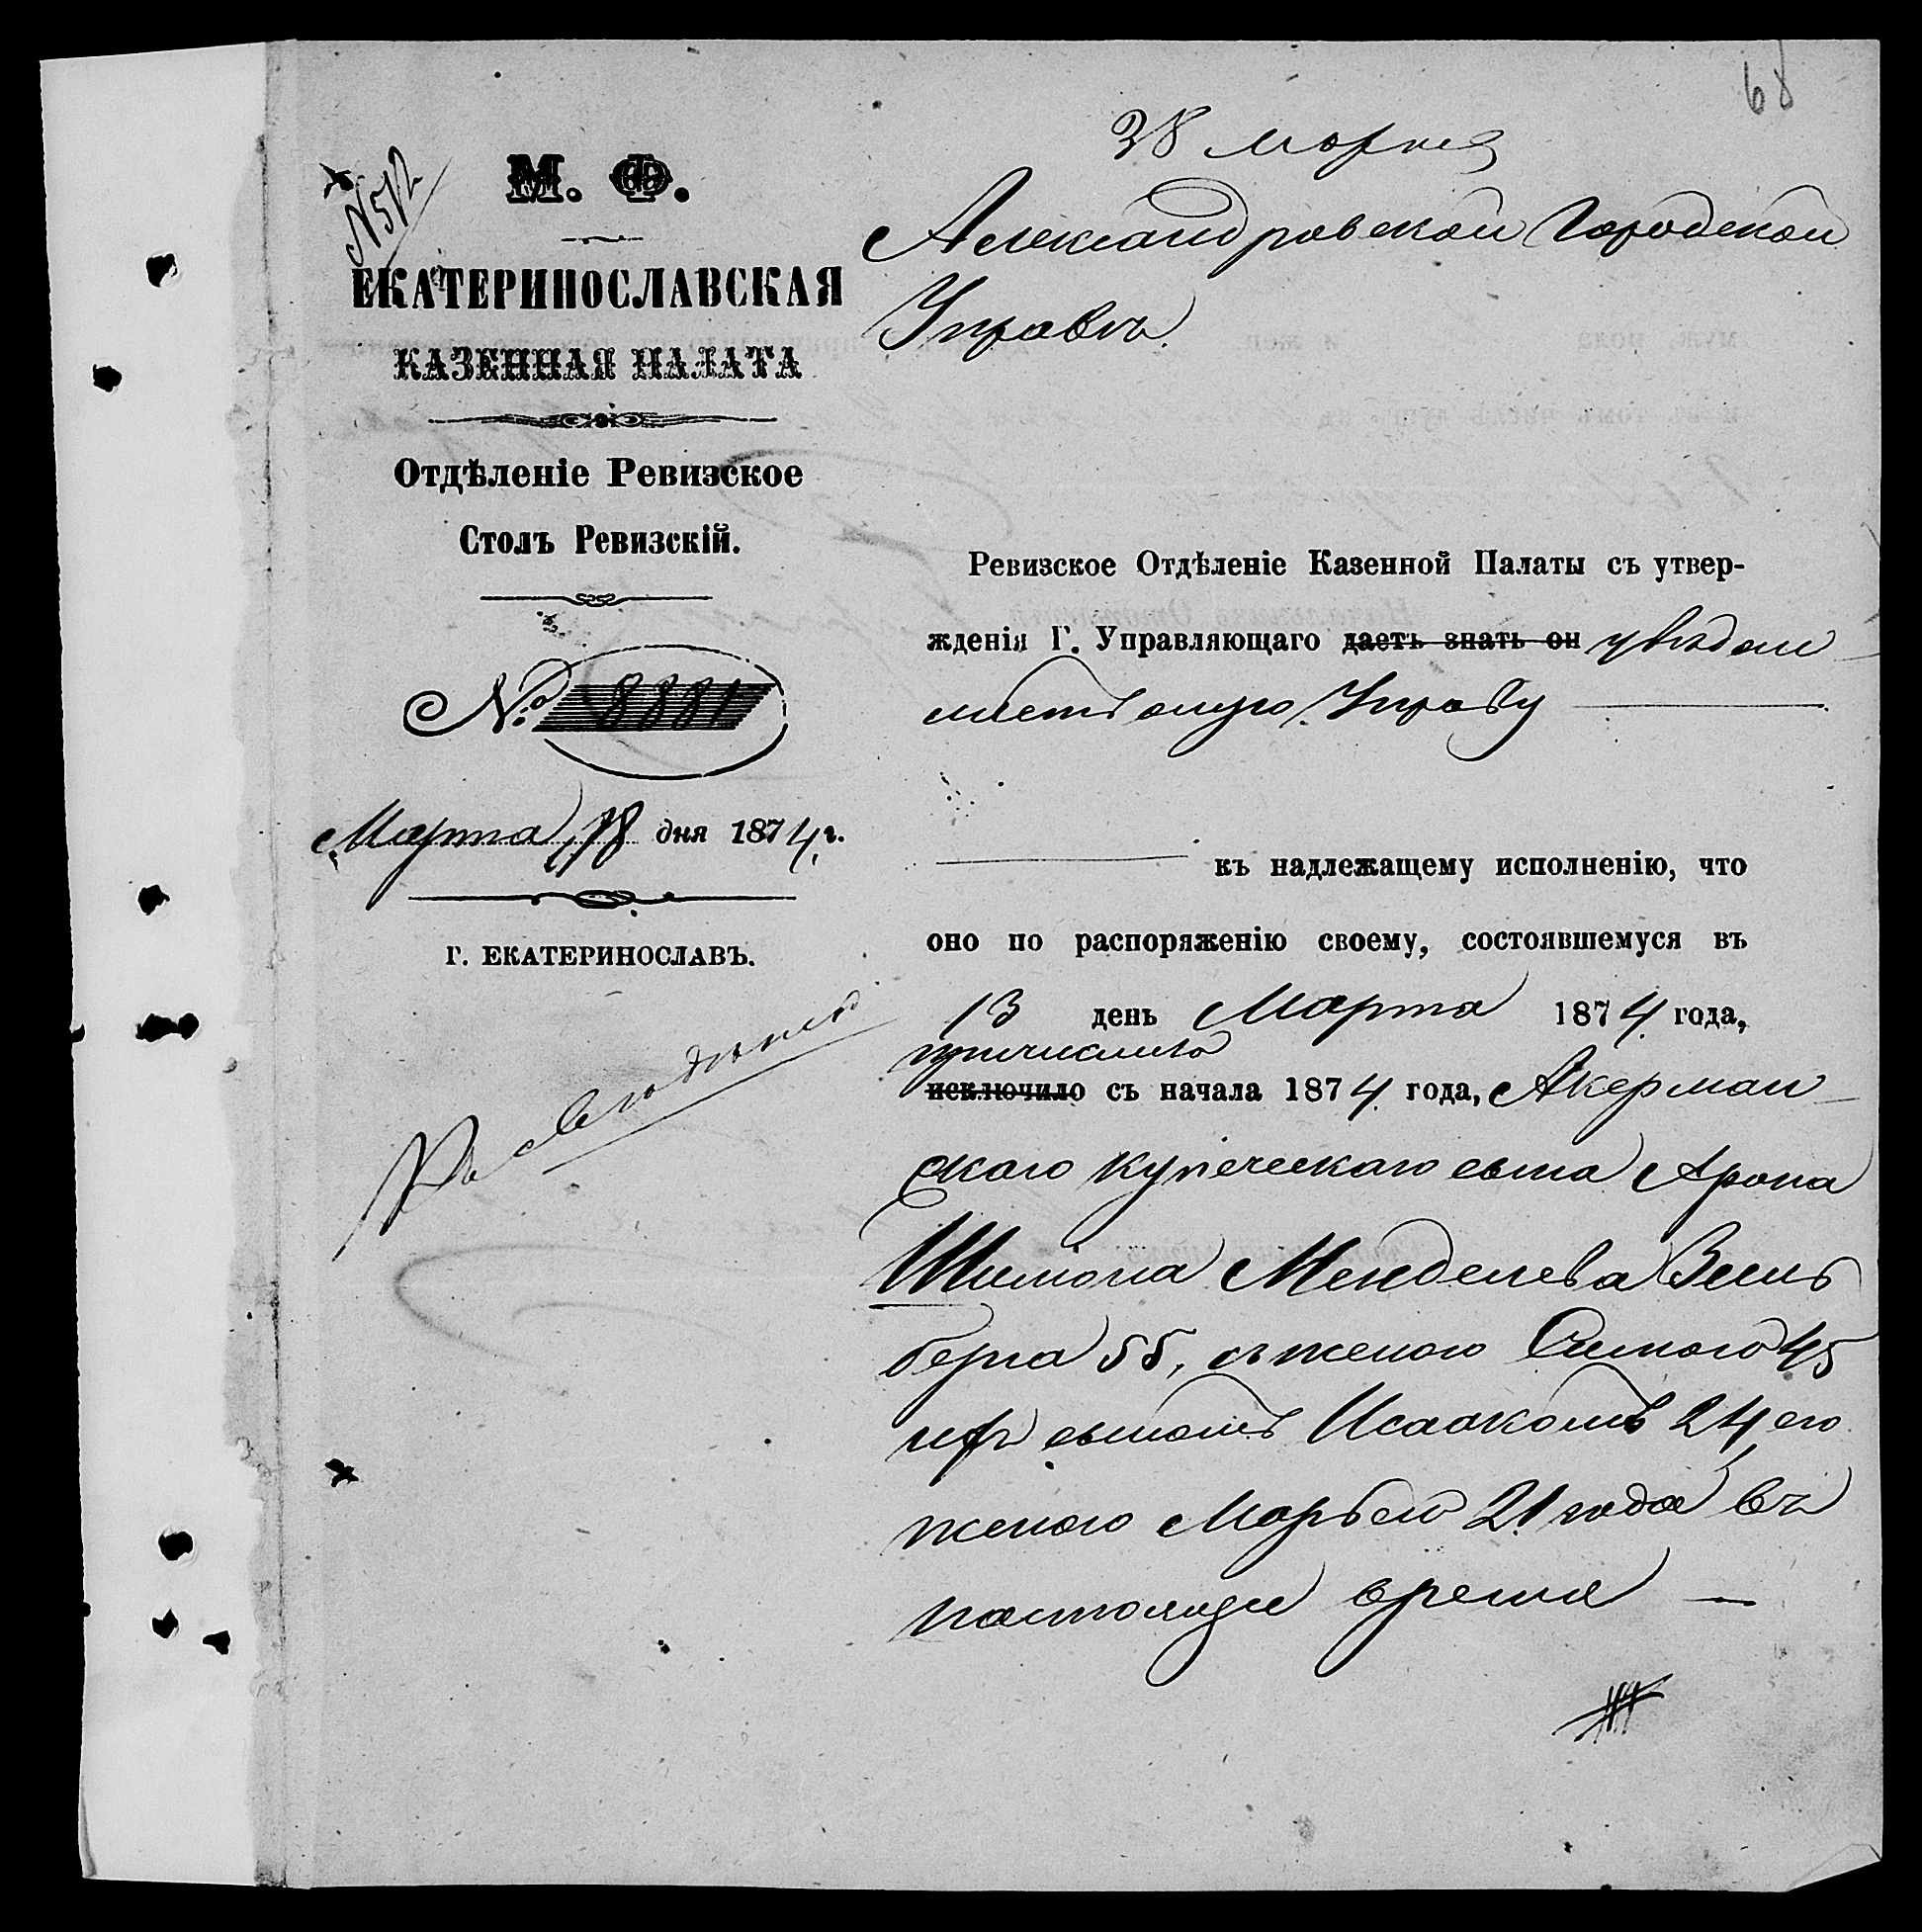 68
28 марта
№ 512
М. Ф.
ЕКАТЕРИНОСЛАВСКАЯ
КАЗЕННАЯ ПАЛАТА
Отдѣленіе Ревизское
Столъ Ревизскій.
№ 8881
Марта 18 дня 1874 г.
Г. ЕКАТЕРИНОСЛАВЪ.
Александровской Городской
Управѣ.
Ревизское Отдѣленіе Казенной Палаты съ утвер-
жденія Г. Управляющаго даетъ знать он увѣдом
ляетъ оную Управу
къ надлежащему исполненію, что
оно по распоряженію своему, состоявшемуся въ
13 день Марта 1874 года,
причислило
исключило съ начала 1874 года, Акерман
скаго купеческаго сына Арона
Шимона Менделева Зель
берга 55, съ женою Симою 45
и сыномъ Исаакомъ 24 его
женою Марьею 21 года въ
настояще время —